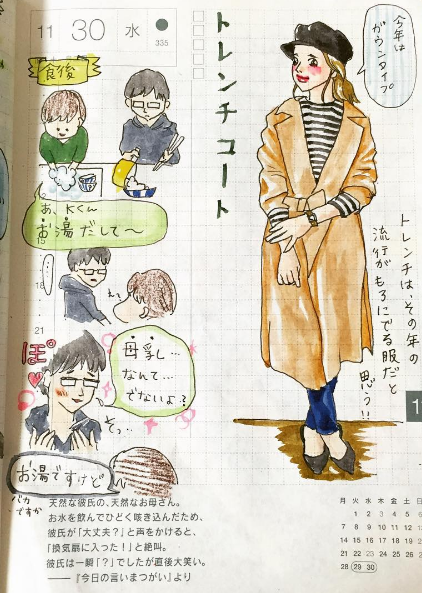 11 30 水
335
食後
あ、Kくん
お湯だして〜
…
え?
21
ぽ
母乳…
なんて…
でないよ?
そっ…
お湯ですけど
バカ
ですか
トレンチコート
今年は
ガウンタイプ
トレンチは、その年の
流行がもろにでる服だと
思う!!
天然な彼氏の、天然なお母さん。
お水を飲んでひどく咳き込んだため、
彼氏が「大丈夫?」と声をかけると、
「換気扇に入った!」と絶叫。
彼氏は一瞬「?」でしたが直後大笑い。
——『今日の言いまつがい』より
月 火 水 木 金 土 日
1 2 3 4 5 6
7 8 9 10 11 12 13
14 15 16 17 18 19 20
21 22 23 24 25 26 27
28 29 30